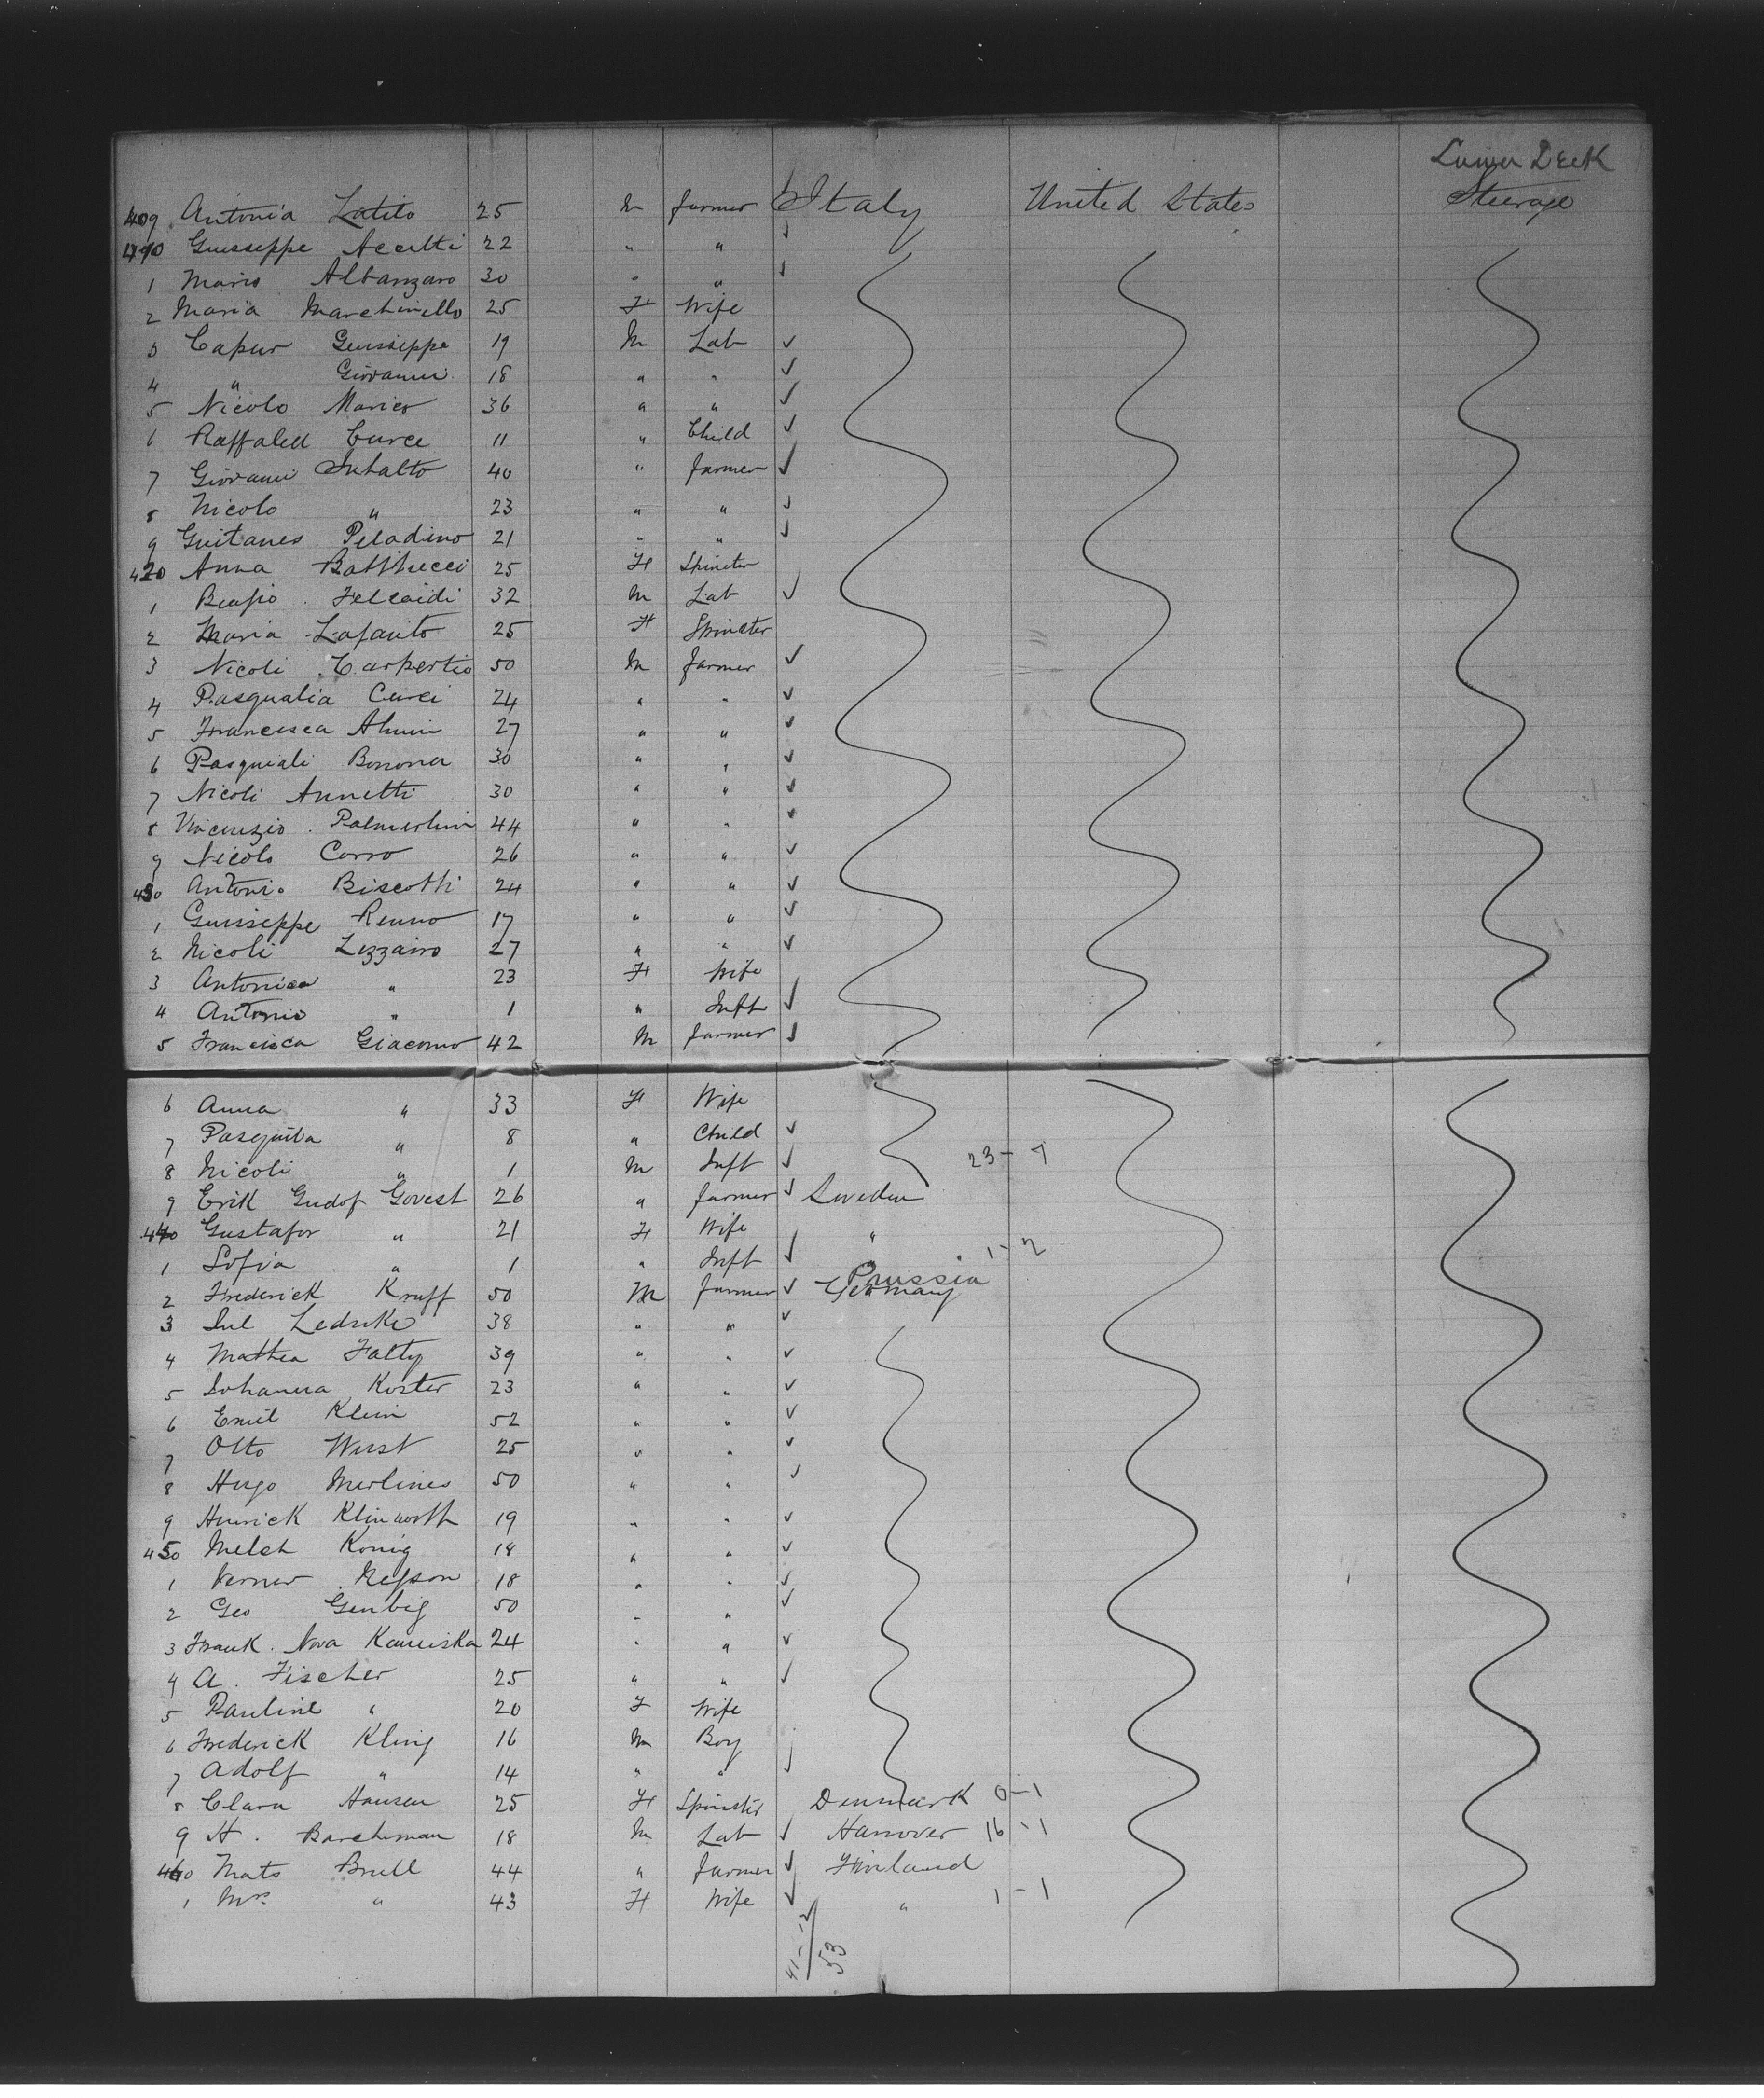 Lower Deck
409 Antonia Latilo 25 M farmer Italy United States Steerage
410 Guisseppe Acculti 22 " "
1 Mario Albanzaro 30 " "
2 Maria Marchinello 25 F Wife
3 Capur Guisseppe 19 M Lab
4 " Giovanni 18 " "
5 Nicolo Marico 36 " "
6 Raffalell Curce 11 " Child
7 Giovanni Intalto 40 " farmer
8 Nicolo " 23 " "
9 Guitanes Peladino 21 " "
420 Anna Batthucci 25 F Spinster
1 Biasio Felcaidi 32 M Lab
2 Maria Lafanto 25 F Spinster
3 Nicoli Carpertio 50 M farmer
4 Pasqualia Curci 24 " "
5 Francesca 27 " "
6 Pasquiali Bonona 30 " "
7 Nicoli Annetti 30 " "
8 Vincenzio Palmerlini 44 " "
9 Nicolo Corro 26 " "
430 Antonio Biscotti 24 " "
1 Guisseppe Renno 17 " "
2 Nicoli Lezzairo 27 " "
3 Antonica " 23 F Wife
4 Antonio " 1 " Inft
5 Francisca Giacomo 42 M farmer
6 Anna " 33 F Wife
7 Pasquita " 8 " Child
8 Nicoli " 1 M Inft 23 - 7
9 Erik Gudof Govest 26 " farmer Sweden
440 Gustafor " 21 F Wife "
1 Sofia " 1 " Inft " 1 - 2
Prussia
2 Frederick Kruff 50 M farmer Germany
3 Jul Leduke 38 " "
4 Mathea Falty 39 " "
5 Johanna Koster 23 " "
6 Emil Klein 52 " "
7 Otto Wurst 25 " "
8 Hugo Merlines 50 " "
9 Hinrick Klinworth 19 " "
450 Melch Konig 18 " "
1 Verner Nefson 18 " "
2 Geo Genbig 50 " "
3 Frank Nova Kamiska 24 " "
4 A. Fischer 25 " "
5 Pauline " 20 F Wife
6 Frederick Kling 16 M Boy
7 Adolf " 14 " "
8 Clara Hansen 25 F Spinster Denmark 0 - 1
9 H. Barchman 18 M Lab Hanover 16 - 1
460 Mats Brull 44 " farmer Finland
1 Mrs " 43 F Wife " 1 - 1
41 - 12
53